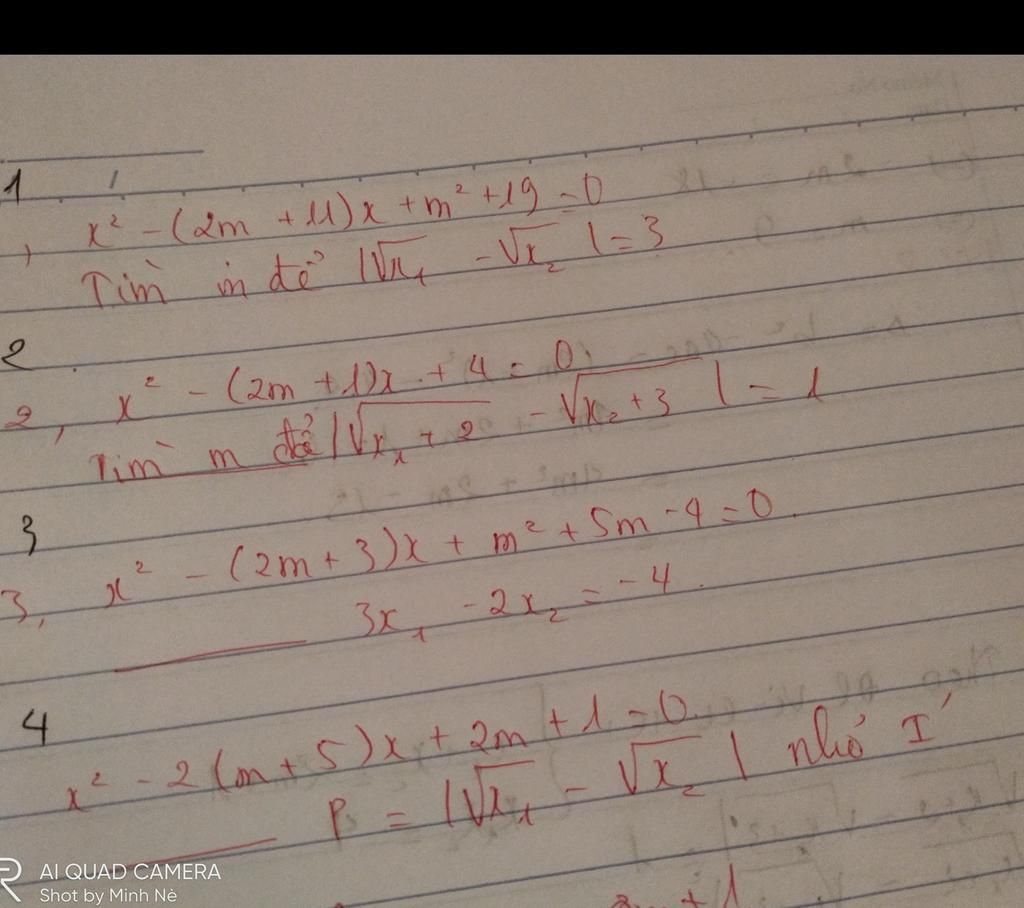 1
1, x² - (2m + 11)x + m² + 19 = 0
Tìm m để |√x₁ - √x₂| = 3
2
2, x² - (2m + 1)x + 4 = 0
Tìm m để |√x₁ + 2 - √x₂ + 3| = 1
3
3, x² - (2m + 3)x + m² + 5m - 4 = 0.
3x₁ - 2x₂ = -4.
4
x² - 2(m + 5)x + 2m + 1 = 0
P = |√x₁ - √x₂| nhỏ I'
AI QUAD CAMERA
Shot by Minh Nè